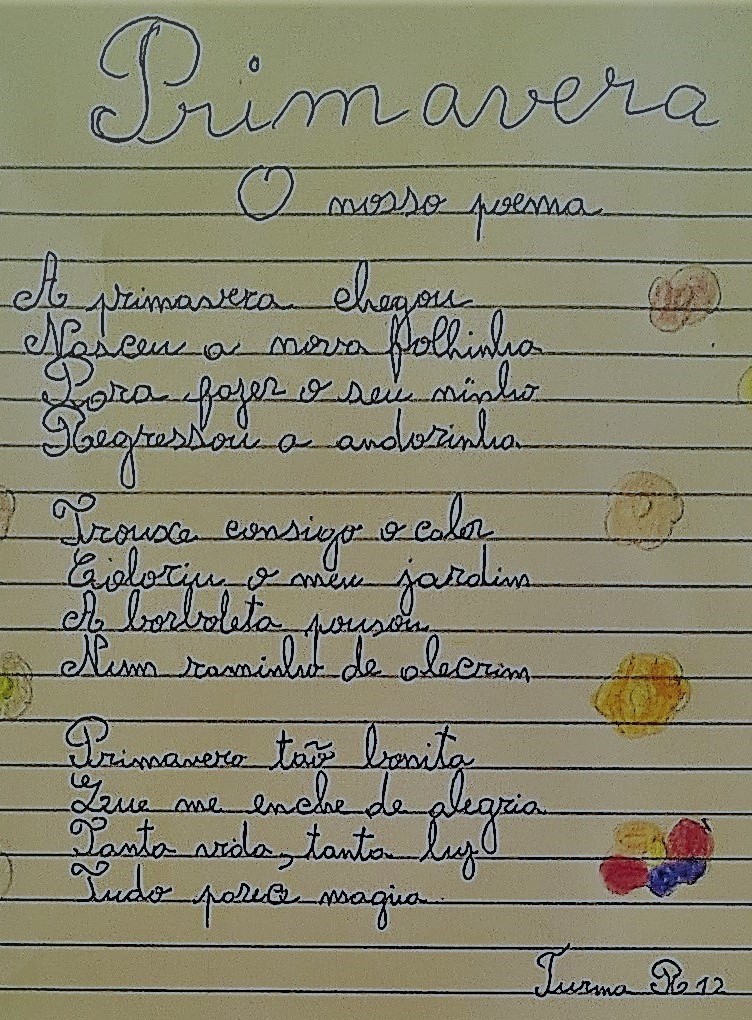 Primavera
O nosso poema
A primavera chegou
Nasceu a nova folhinha
Para fazer o seu ninho
Regressou a andorinha
Trouxe consigo o calor
Coloriu o meu jardim
A borboleta pousou
Num raminho de alecrim
Primavera tão bonita
Que me enche de alegria
Tanta vida, tanta luz
Tudo parece magia
Turma R 12